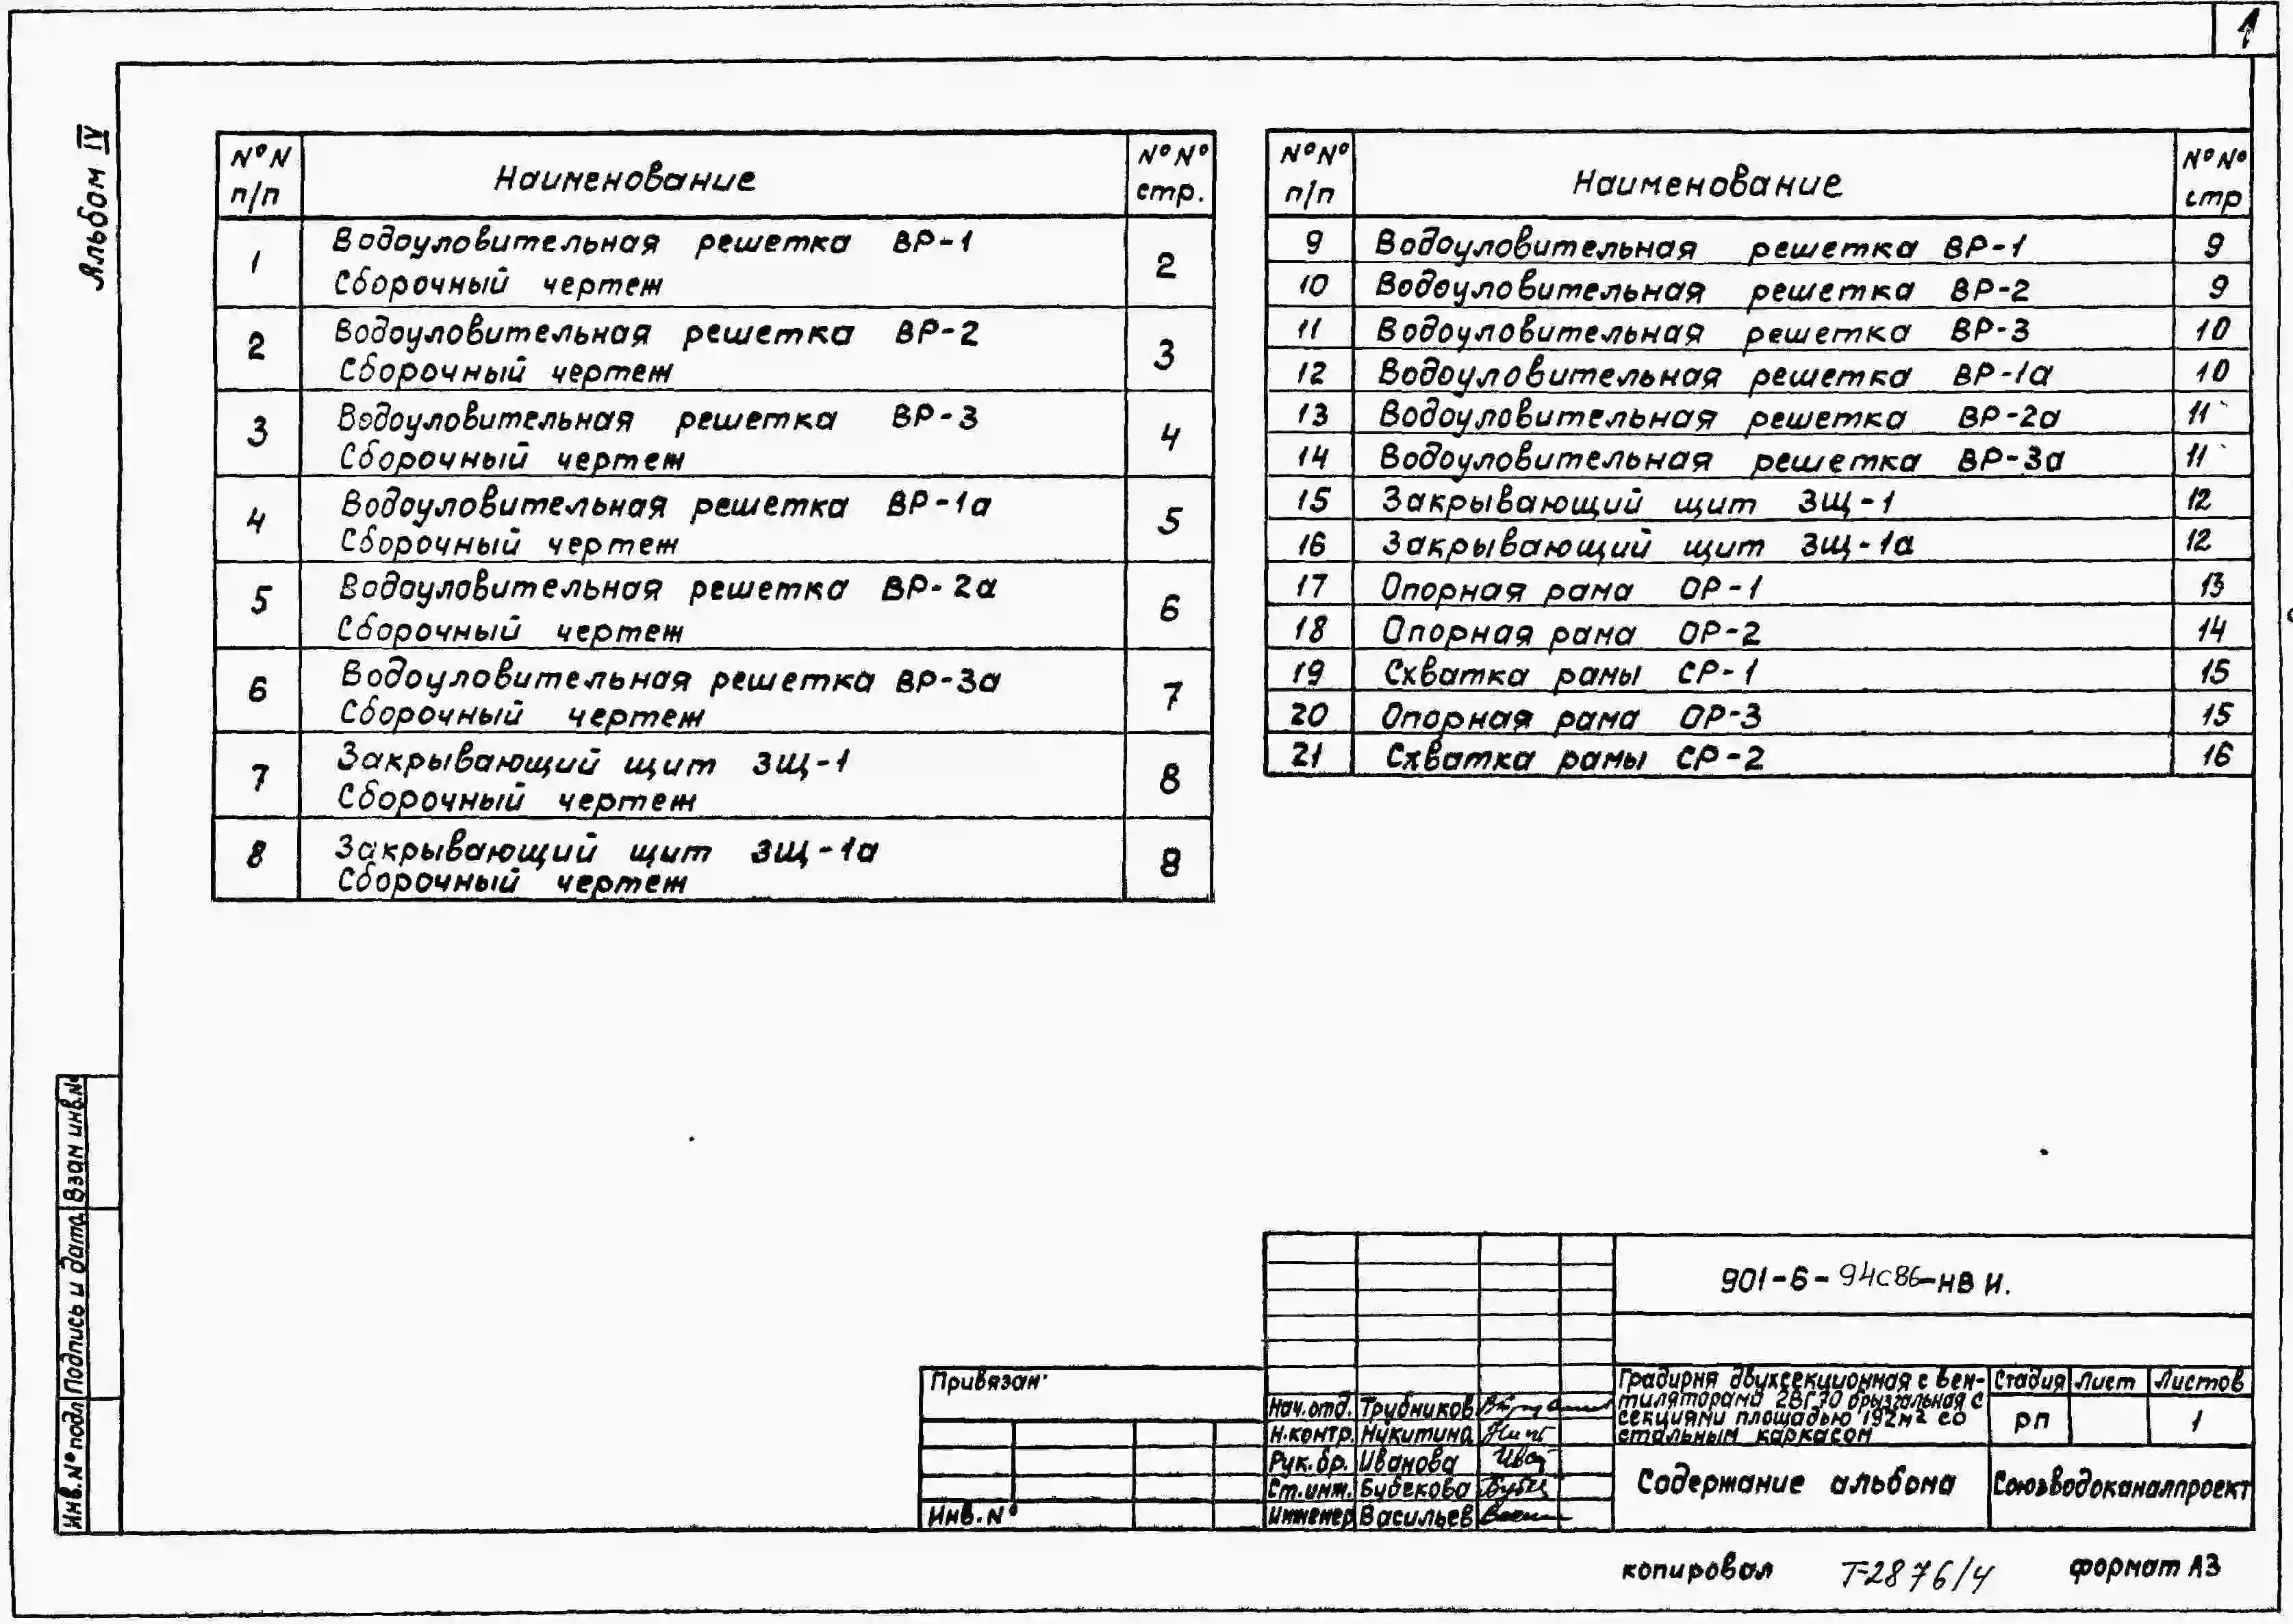 1
Альбом IV
№N п/п Наименование №№ стр.
1 Водоуловительная решетка ВР-1 2
Сборочный чертеж
2 Водоуловительная решетка ВР-2 3
Сборочный чертеж
3 Водоуловительная решетка ВР-3 4
Сборочный чертеж
4 Водоуловительная решетка ВР-1а 5
Сборочный чертеж
5 Водоуловительная решетка ВР-2а 6
Сборочный чертеж
6 Водоуловительная решетка ВР-3а 7
Сборочный чертеж
7 Закрывающий щит ЗЩ-1 8
Сборочный чертеж
8 Закрывающий щит ЗЩ-1а 8
Сборочный чертеж
№№ п/п Наименование №№ стр
9 Водоуловительная решетка ВР-1 9
10 Водоуловительная решетка ВР-2 9
11 Водоуловительная решетка ВР-3 10
12 Водоуловительная решетка ВР-1а 10
13 Водоуловительная решетка ВР-2а 11
14 Водоуловительная решетка ВР-3а 11
15 Закрывающий щит ЗЩ-1 12
16 Закрывающий щит ЗЩ-1а 12
17 Опорная рама ОР-1 13
18 Опорная рама ОР-2 14
19 Схватка рамы СР-1 15
20 Опорная рама ОР-3 15
21 Схватка рамы СР-2 16
Взам инв.№
Подпись и дата
Инв.№ подл
Привязан
Инв.№
901-6-94с86-НВ И.
Нач.отд. Трубников
Н.контр. Никитина
Рук.бр. Иванова
Ст.инж. Бубекова
Инженер Васильев
Градирня двухсекционная с вен-
тиляторами 2ВГ70 брызгальная с
секциями площадью 192м2 со
стальным каркасом
Стадия Лист Листов
рп 1
Содержание альбома
Союзводоканалпроект
копировал Т-2876/4 формат А3